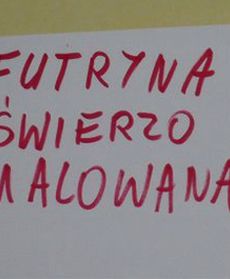 FUTRYNA
ŚWIERZO
MALOWANA